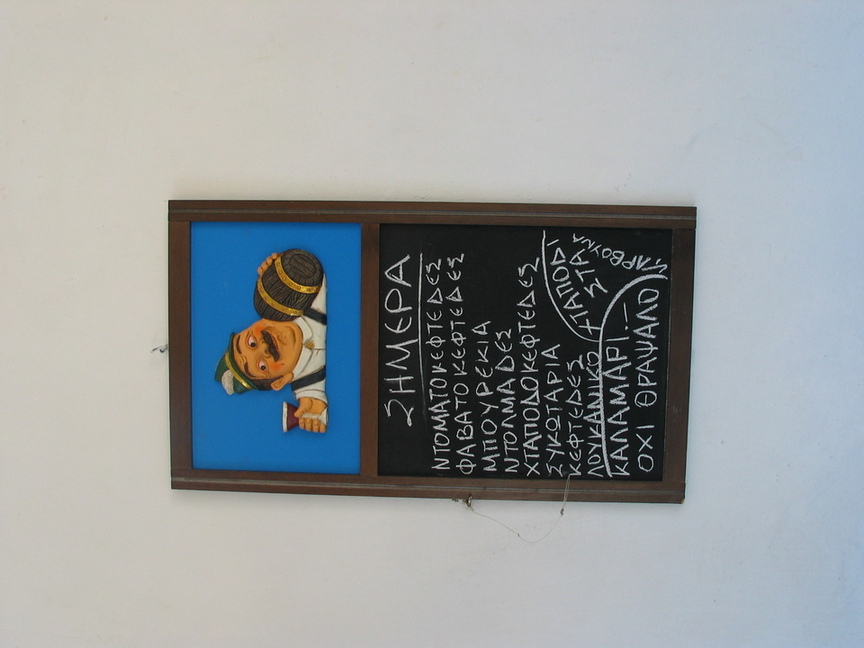 ΣΗΜΕΡΑ
ΝΤΟΜΑΤΟΚΕΦΤΕΔΕΣ
ΦΑΒΑΤΟΚΕΦΤΕΔΕΣ
ΜΠΟΥΡΕΚΙΑ
ΝΤΟΛΜΑΔΕΣ
ΧΤΑΠΟΔΟΚΕΦΤΕΔΕΣ
ΣΥΚΩΤΑΡΙΑ
ΚΕΦΤΕΔΕΣ
ΛΟΥΚΑΝΙΚΟ
ΧΤΑΠΟΔΙ
ΣΤΑ
ΚΑΡΒΟΥΝΑ
ΚΑΛΑΜΑΡΙ!—
ΟΧΙ ΘΡΑΨΑΛΟ